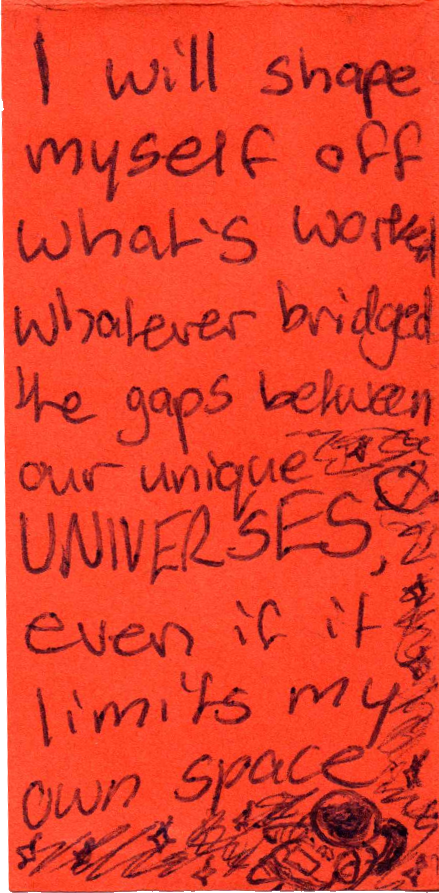 I will shape
myself off
what's worked
whatever bridged
the gaps between
our unique
UNIVERSES,
even if it
limits my
own space